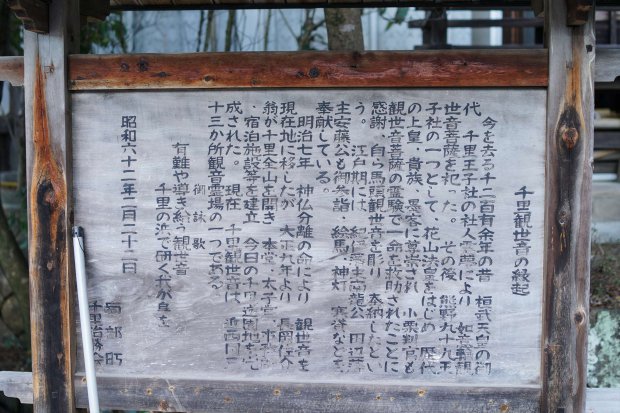 千里観世音の縁起
今を去る千二百有余年の昔 桓武天皇の御
代 千里王子社の社人霊夢により 如意輪観
世音菩薩を祀った。その後 熊野九十九王
子社の一つとして 花山法皇をはじめ 歴代
の上皇・貴族・墨客に尊崇され 小栗判官も
観世音菩薩の霊験で一命を救助されたことに
感謝、自ら馬頭観世音を彫り 奉納したとい
う。江戸期には 紀伊藩主南龍公 田辺藩
主安藤公も御参詣・絵馬・神灯 写経などを
奉献している。
明治七年 神仏分離の命により 観世音を
現在地に移したが 大正九年より 長岡
翁が千里全山を開き 本堂・太子堂
・宿泊施設等を建立 今日の千里
成された。現在 千里観世音は 近西国三
十三か所観音霊場の一つである
御詠歌
有難や導き給う観世音
千里の浜で研く代が身を
昭和六十二年二月二十一日
南部町
千里